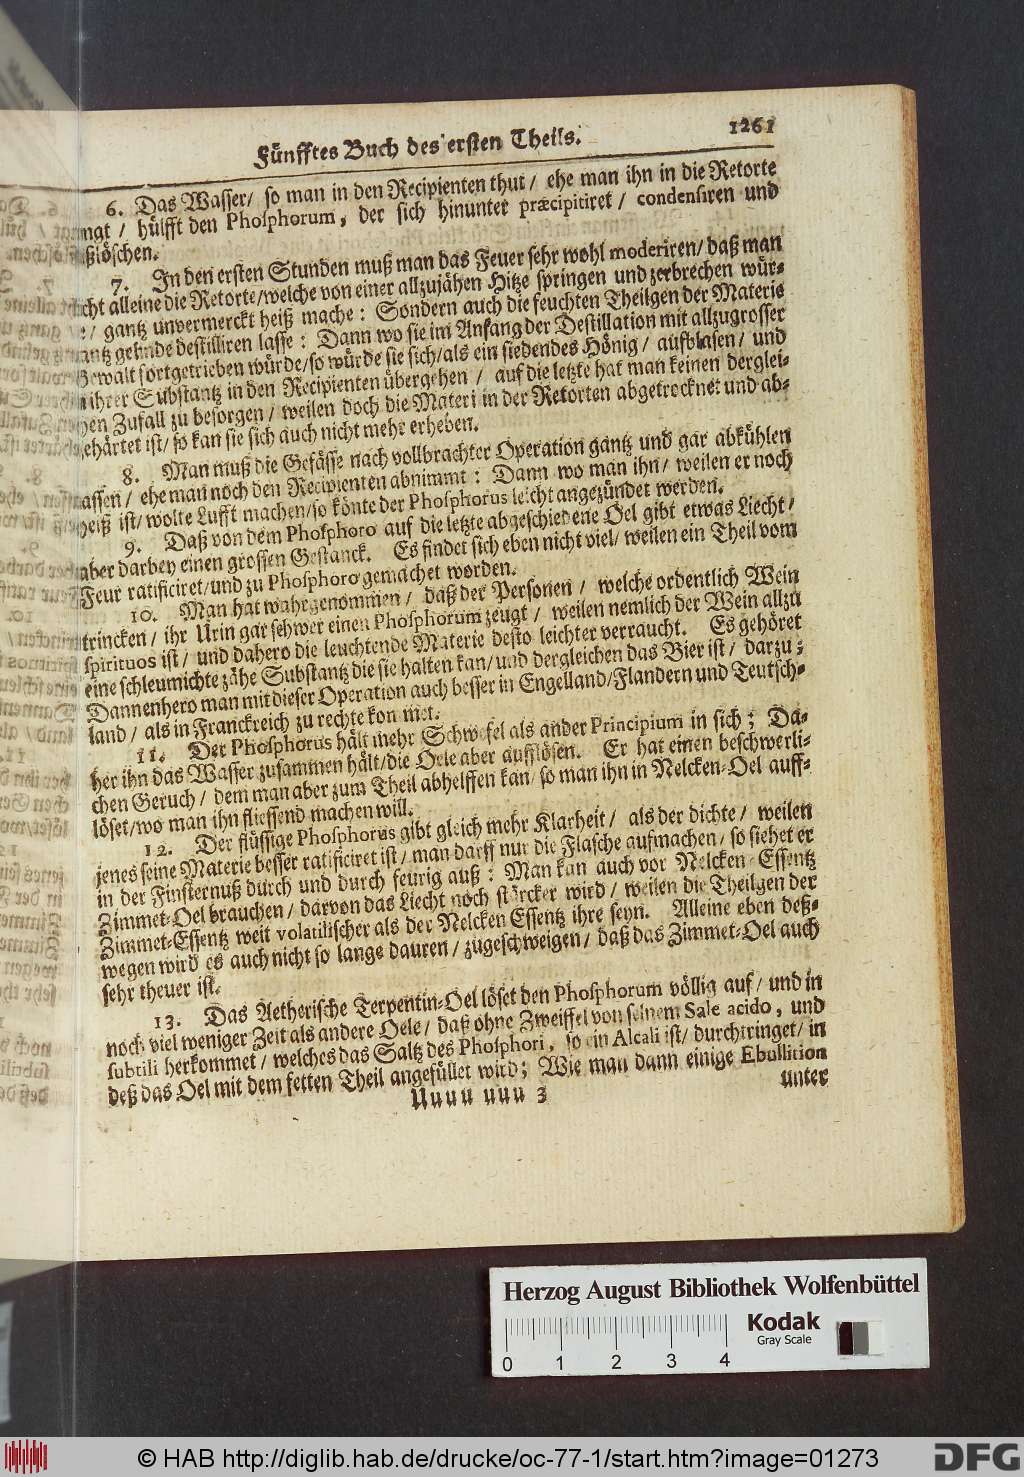 Fünfftes Buch des ersten Theils. 1261
6. Das Wasser/ so man in den Recipienten thut/ ehe man ihn in die Retorte
ngt/ hülfft den Phosphorum, der sich hinunter præcipitiret/ condensiren und
ßlöschen.
7. In den ersten Stunden muß man das Feuer sehr wohl moderiren/ daß man
cht alleine die Retorte/ welche von einer allzujähen Hitze springen und zerbrechen wür-
/ gantz unvermerckt heiß mache: Sondern auch die feuchten Theilgen der Materie
antz gehnde destilliren lasse: Dann wo sie im Anfang der Destillation mit allzugrosser
Gewalt fortgetrieben würde/ so würde sie sich/ als ein siedendes Hönig/ aufblasen/ und
n ihrer Substantz in den Recipienten übergehen/ auf die letzte hat man keinen derglei-
hen Zufall zu besorgen/ weilen doch die Materi in der Retorten abgetrocknet und ab-
gehärtet ist/ so kan sie sich auch nicht mehr erheben.
8. Man muß die Gefässe nach vollbrachter Operation gantz und gar abkühlen
assen/ ehe man noch den Recipienten abnimmt: Dann wo man ihn/ weilen er noch
heiß ist/ wolte Lufft machen/ so könte der Phosphorus leicht angezündet werden.
9. Daß von dem Phosphoro auf die letzte abgeschiedene Oel gibt etwas Liecht/
aber darbey einen grossen Gestanck. Es findet sich eben nicht viel/ weilen ein Theil vom
Feur ratificiret/ und zu Phosphoro gemachet worden.
10. Man hat wahrgenommen/ daß der Personen/ welche ordentlich Wein
trincken/ ihr Urin gar schwer einen Phosphorum zeugt/ weilen nemlich der Wein allzu
spirituos ist/ und dahero die leuchtende Materie desto leichter verraucht. Es gehöret
eine schleumichte zähe Substantz die sie halten kan/ und dergleichen das Bier ist/ darzu;
Dannenhero man mit dieser Operation auch besser in Engelland/ Flandern und Teutsch-
land/ als in Franckreich zu rechte kommet.
11. Der Phosphorus hält mehr Schwefel als ander Principium in sich; Da-
her ihn das Wasser zusammen hält/ die Oele aber aufflösen. Er hat einen beschwerli-
chen Geruch/ dem man aber zum Theil abhelffen kan/ so man ihn in Nelcken-Oel auff-
löset/ wo man ihn fliessend machen will.
12. Der flüssige Phosphorus gibt gleich mehr Klarheit/ als der dichte/ weilen
jenes seine Materie besser ratificiret ist/ man darff nur die Flasche aufmachen/ so siehet er
in der Finsternuß durch und durch feurig auß: Man kan auch vor Nelcken-Essentz
Zimmet-Oel brauchen/ darvon das Liecht noch stärcker wird/ weilen die Theilgen der
Zimmet-Essentz weit volatilischer als der Nelcken Essentz ihre seyn. Alleine eben deß-
wegen wird es auch nicht so lange dauren/ zugeschweigen/ daß das Zimmet-Oel auch
sehr theuer ist.
13. Das Aetherische Terpentin-Oel löset den Phosphorum völlig auf/ und in
noch viel weniger Zeit als andere Oele/ daß ohne Zweiffel von seinem Sale acido, und
subtili herkommet/ welches das Saltz des Phosphori, so ein Alcali ist/ durchtringet/ in
deß das Oel mit dem fetten Theil angefüllet wird; Wie man dann einige Ebullition
Uuuu uuu 3 unter
Herzog August Bibliothek Wolfenbüttel
Kodak
Gray Scale
0 1 2 3 4
© HAB http://diglib.hab.de/drucke/oc-77-1/start.htm?image=01273
DFG